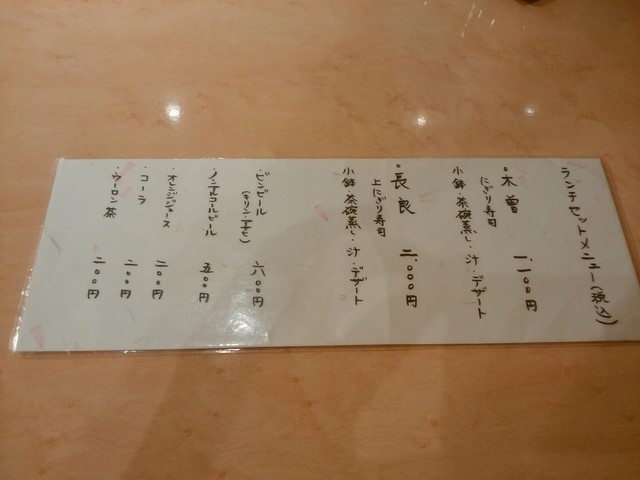 ランチセットメニュー(税込)
・木曽 一、一〇〇円
にぎり寿司
小鉢・茶碗蒸し・汁・デザート
・長良 二、〇〇〇円
上にぎり寿司
小鉢・茶碗蒸し・汁・デザート
・ビンビール 六〇〇円
(キリン・アサヒ)
・ノンアルコールビール 五〇〇円
・オレンジジュース 二〇〇円
・コーラ 二〇〇円
・ウーロン茶 二〇〇円